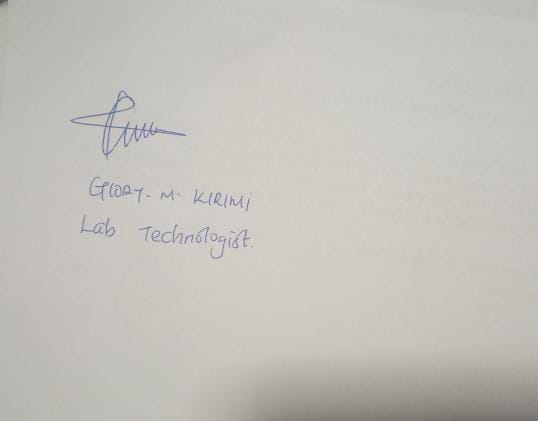 GLORY. M. KIRIMI
Lab Technologist.